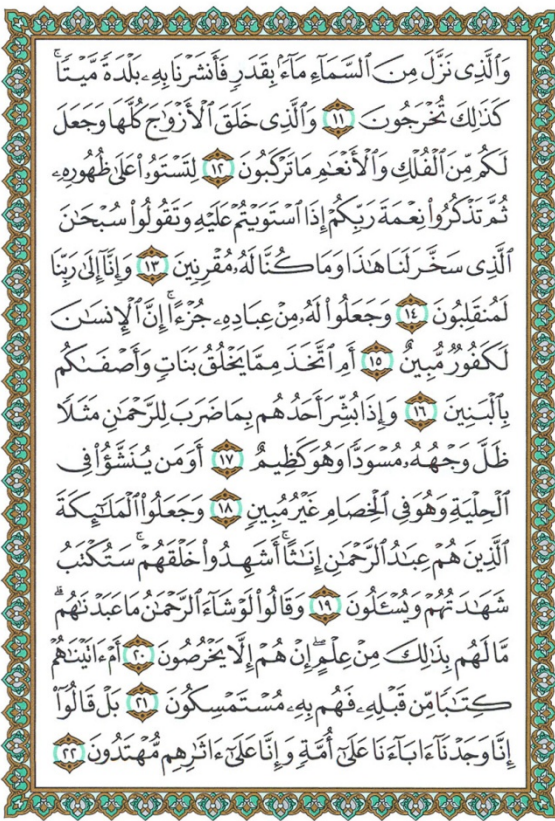 وَالَّذِى نَزَّلَ مِنَ السَّمَآءِ مَآءًۢ بِقَدَرٍ فَأَنشَرْنَا بِهِۦ بَلْدَةً مَّيْتًاۚ
كَذَٰلِكَ تُخْرَجُونَ ١١ وَالَّذِى خَلَقَ الْأَزْوَٰجَ كُلَّهَا وَجَعَلَ
لَكُم مِّنَ الْفُلْكِ وَالْأَنْعَٰمِ مَا تَرْكَبُونَ ١٢ لِتَسْتَوُۥا۟ عَلَىٰ ظُهُورِهِۦ
ثُمَّ تَذْكُرُوا۟ نِعْمَةَ رَبِّكُمْ إِذَا اسْتَوَيْتُمْ عَلَيْهِ وَتَقُولُوا۟ سُبْحَٰنَ
الَّذِى سَخَّرَ لَنَا هَٰذَا وَمَا كُنَّا لَهُۥ مُقْرِنِينَ ١٣ وَإِنَّآ إِلَىٰ رَبِّنَا
لَمُنقَلِبُونَ ١٤ وَجَعَلُوا۟ لَهُۥ مِنْ عِبَادِهِۦ جُزْءًاۚ إِنَّ الْإِنسَٰنَ
لَكَفُورٌ مُّبِينٌ ١٥ أَمِ اتَّخَذَ مِمَّا يَخْلُقُ بَنَاتٍ وَأَصْفَىٰكُم
بِالْبَنِينَ ١٦ وَإِذَا بُشِّرَ أَحَدُهُم بِمَا ضَرَبَ لِلرَّحْمَٰنِ مَثَلًا
ظَلَّ وَجْهُهُۥ مُسْوَدًّا وَهُوَ كَظِيمٌ ١٧ أَوَمَن يُنَشَّؤُا۟ فِى
الْحِلْيَةِ وَهُوَ فِى الْخِصَامِ غَيْرُ مُبِينٍ ١٨ وَجَعَلُوا۟ الْمَلَٰٓئِكَةَ
الَّذِينَ هُمْ عِبَٰدُ الرَّحْمَٰنِ إِنَٰثًاۚ أَشَهِدُوا۟ خَلْقَهُمْۚ سَتُكْتَبُ
شَهَٰدَتُهُمْ وَيُسْـَٔلُونَ ١٩ وَقَالُوا۟ لَوْ شَآءَ الرَّحْمَٰنُ مَا عَبَدْنَٰهُمۗ
مَّا لَهُم بِذَٰلِكَ مِنْ عِلْمٍۖ إِنْ هُمْ إِلَّا يَخْرُصُونَ ٢٠ أَمْ ءَاتَيْنَٰهُمْ
كِتَٰبًا مِّن قَبْلِهِۦ فَهُم بِهِۦ مُسْتَمْسِكُونَ ٢١ بَلْ قَالُوٓا۟
إِنَّا وَجَدْنَآ ءَابَآءَنَا عَلَىٰٓ أُمَّةٍ وَإِنَّا عَلَىٰٓ ءَاثَٰرِهِم مُّهْتَدُونَ ٢٢